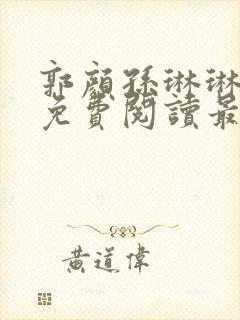 郭顏孫琳琳
免費閱讀最
黃道偉